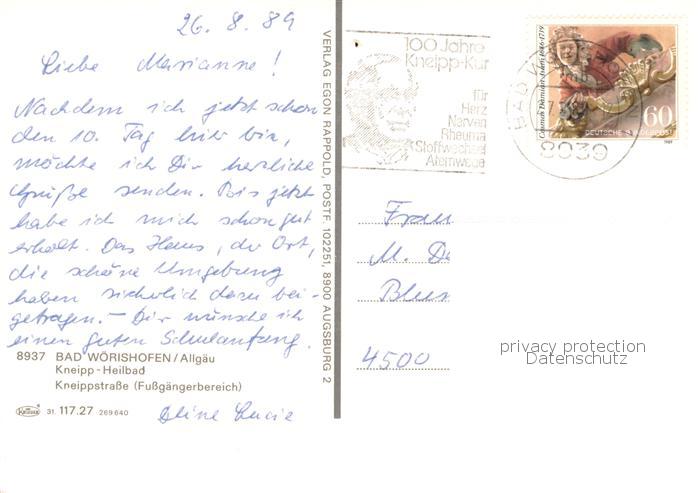 26. 8. 89
Liebe Marianne!
Nachdem ich jetzt schon
den 10. Tag hier bin,
möchte ich Dir herzliche
Grüße senden. Bis jetzt
habe ich mich schon gut
erholt. Das Haus, der Ort,
die schöne Umgebung
haben sicherlich dazu bei-
getragen. – Dir wünsche ich
einen guten Schulanfang.
8937 BAD WÖRISHOFEN/Allgäu
Kneipp-Heilbad
Kneippstraße (Fußgängerbereich)
Krüger 31. 117.27 269640
Deine Lucie
VERLAG EGON RAPPOLD, POSTF. 102251, 8900 AUGSBURG 2
100 Jahre
Kneipp-Kur
für
Herz
Nerven
Rheuma
Stoffwechsel
Atemwege
BAD
8939
Cosmas Damian Asam 1686-1739
60
DEUTSCHE BUNDESPOST
Frau
M. De
Blum
4500
privacy protection
Datenschutz